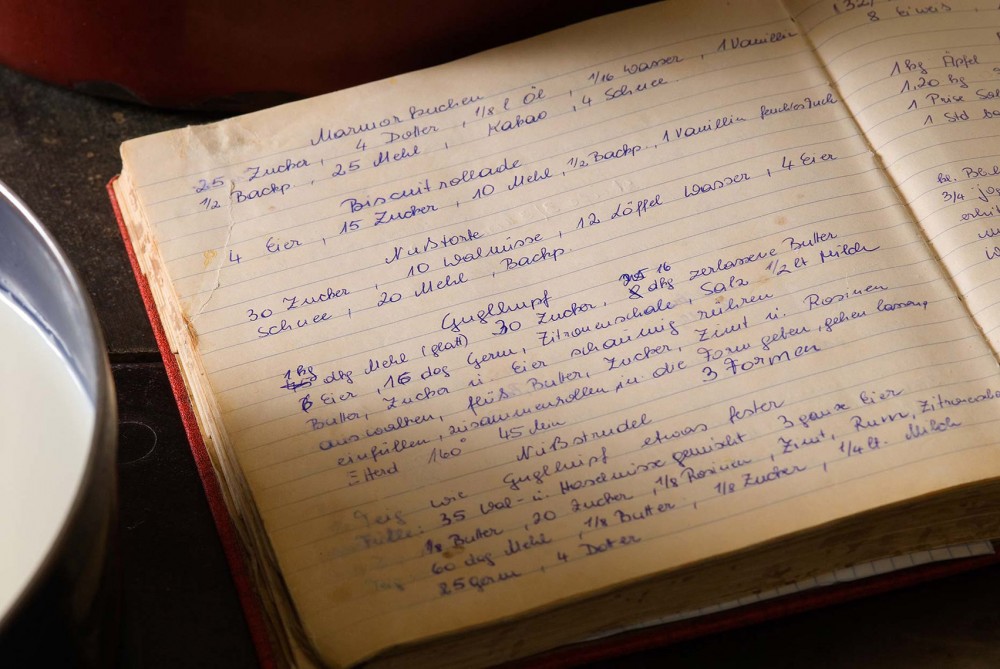 Marmorkuchen
25 Zucker, 4 Dotter, 1/8 l Öl, 1/16 Wasser, 1 Vanillin
1/2 Backp., 25 Mehl, Kakao, 4 Schnee
Biscuitrollade
4 Eier, 15 Zucker, 10 Mehl, 1/2 Backp., 1 Vanillin feuchtes Tuch
Nußtorte
30 Zucker, 10 Walnüsse, 12 Löffel Wasser, 4 Eier
Schnee, 20 Mehl, Backp.
Guglhupf
1 kg dkg Mehl (glatt) 30 Zucker, 16 dkg zerlassene Butter
6 Eier, 16 dag Germ, Zitronenschale, Salz 1/2 lt Milch
Butter, Zucker u. Eier schaumig rühren
auswalken, flüs Butter, Zucker, Zimt u. Rosinen
einfüllen, zusammenrollen, in die Form geben, gehen lassen,
E Herd 160° 45 Min 3 Formen
Nußstrudel
Teig wie Guglhupf etwas fester
Fülle: 35 Wal- u. Haselnüsse gemischt 3 ganze Eier
1/8 Butter, 20 Zucker, 1/8 Rosinen, Zimt, Rum, Zitronensch
60 dag Mehl, 1/8 Butter, 1/8 Zucker, 1/4 lt. Milch
25 Germ, 4 Dotter
8 Eiweis,
1 kg Äpfel
1,20 kg
1 Prise Sal
1 Std
3/4